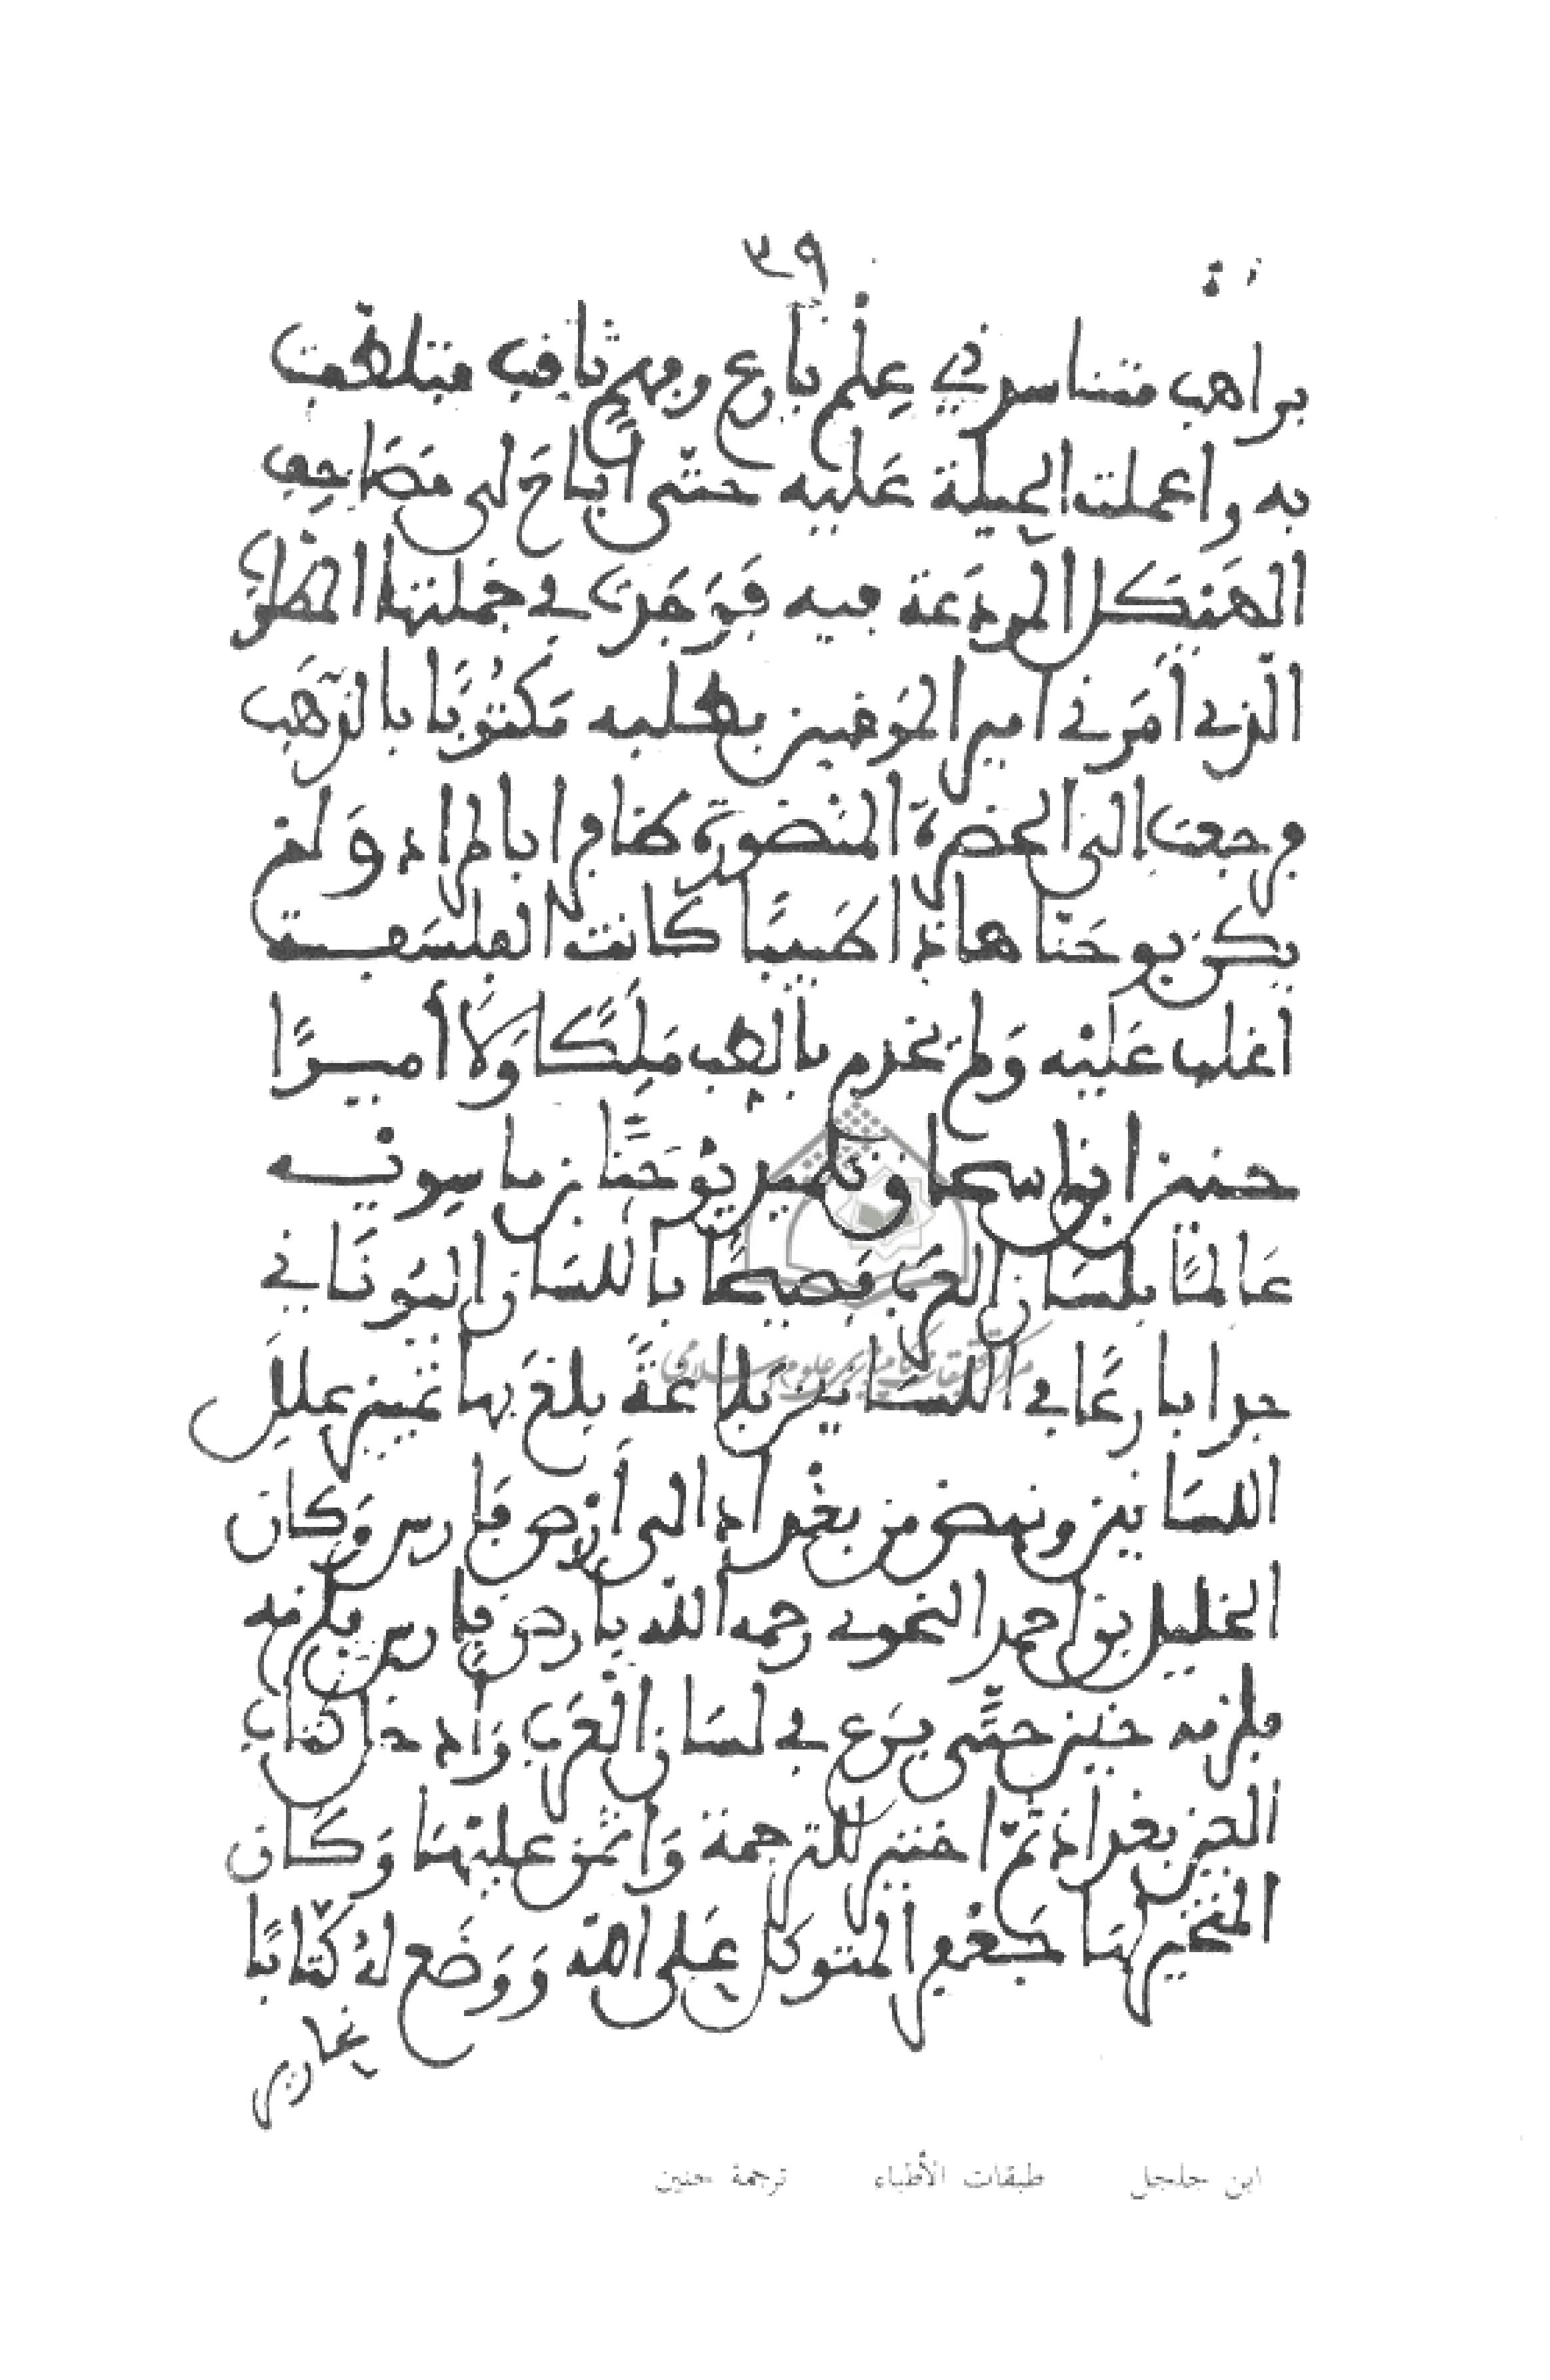 ٣٩
براهب متناسك ذي علم بارع وفهم ثاقب فتلطفت
به واعملت الحيلة عليه حتى أباح لى مصاحف
الهيكل المودعة فيه فوجدت في جملتها المطلوب
الذي أمرني أمير المؤمنين بطلبه مكتوبا بالذهب
فرجعت الى الحضرة المنصورة ظافرا بالمراد ولم
يكن يوحنا هاذا طبيبا كانت الفلسفة
أغلب عليه ولم يخدم بالطب ملكا ولا أميرا
حنين ابن اسحاق تلميذ يوحنا بن ماسويه
عالما بلسان العرب فصيحا باللسان اليوناني
جدا بارعا في اللسانين بلاغة بلغ بها تمييز علل
اللسانين ونهض من بغداد الى أرض فارس وكان
الخليل بن احمد النحوي رحمه الله بارض فارس فلزمه
حنين حتى برع في لسان العرب وأدخل كتاب
العين بغداد ثم اختير للترجمة وائتمن عليها وكان
المتخير لها جعفر المتوكل على الله ووضع له كتابا
نحارير
ابن جلجل طبقات الأطباء ترجمة حنين